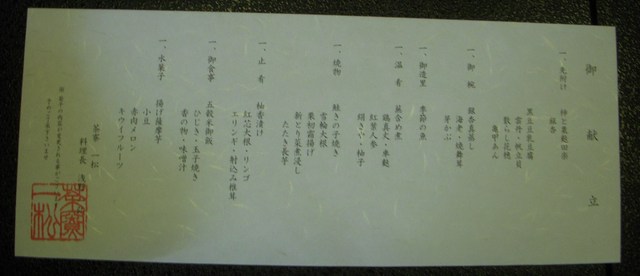 御献立
一、先附け 柿と菊戴田楽
銀杏
黒豆豆乳豆腐
雲丹・帆立貝
散らし花穂
亀甲あん
一、御椀 銀杏真蒸し
海老・焼舞茸
芽かぶ
一、御造里 季節の魚
一、温肴 蕪含め煮
鶏真丈・車麩
紅葉人参
絹さや・柚子
一、焼物 鮭きの子焼き
雪輪大根
栗初霜揚げ
新とり菜煮浸し
たたき長芋
一、止肴 柚香漬け
紅芯大根・リンゴ
エリンギ・射込み椎茸
一、御食事 五穀米御飯
ひじき・玉子焼き
香の物・味噌汁
一、水菓子 揚げ薩摩芋
小豆
赤肉メロン
キウイフルーツ
茶寮 一松
料理長
茶寮一松